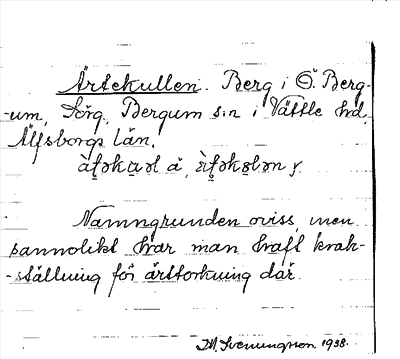 Ärtekullen. Berg i Ö. Berg-
-um, Sörg., Bergum s:n i Vättle hd,
Älfsborgs län.
Namngrunden oviss, men
sannolikt har man haft krak-
-ställning för ärttorkning där.
Svenungsson 1938.